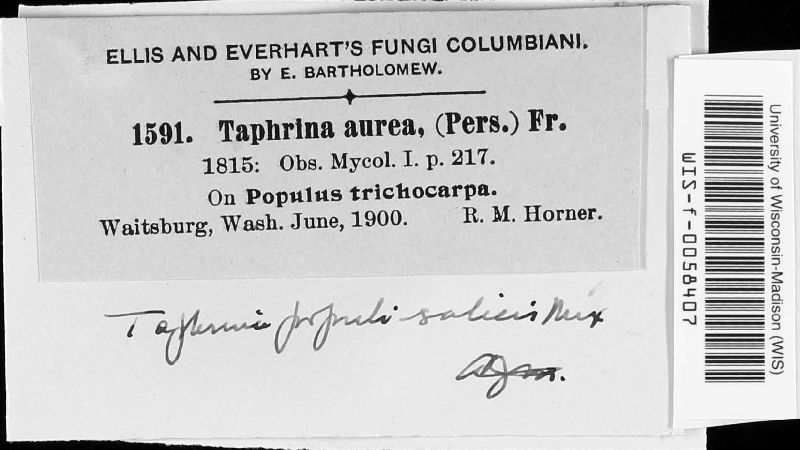 ELLIS AND EVERHART'S FUNGI COLUMBIANI.
BY E. BARTHOLOMEW.
1591. Taphrina aurea, (Pers.) Fr.
1815: Obs. Mycol. I. p. 217.
On Populus trichocarpa.
Waitsburg, Wash. June, 1900. R. M. Horner.
Taphrina populi-salicis Mix
University of Wisconsin-Madison (WIS)
WIS-f-0058407